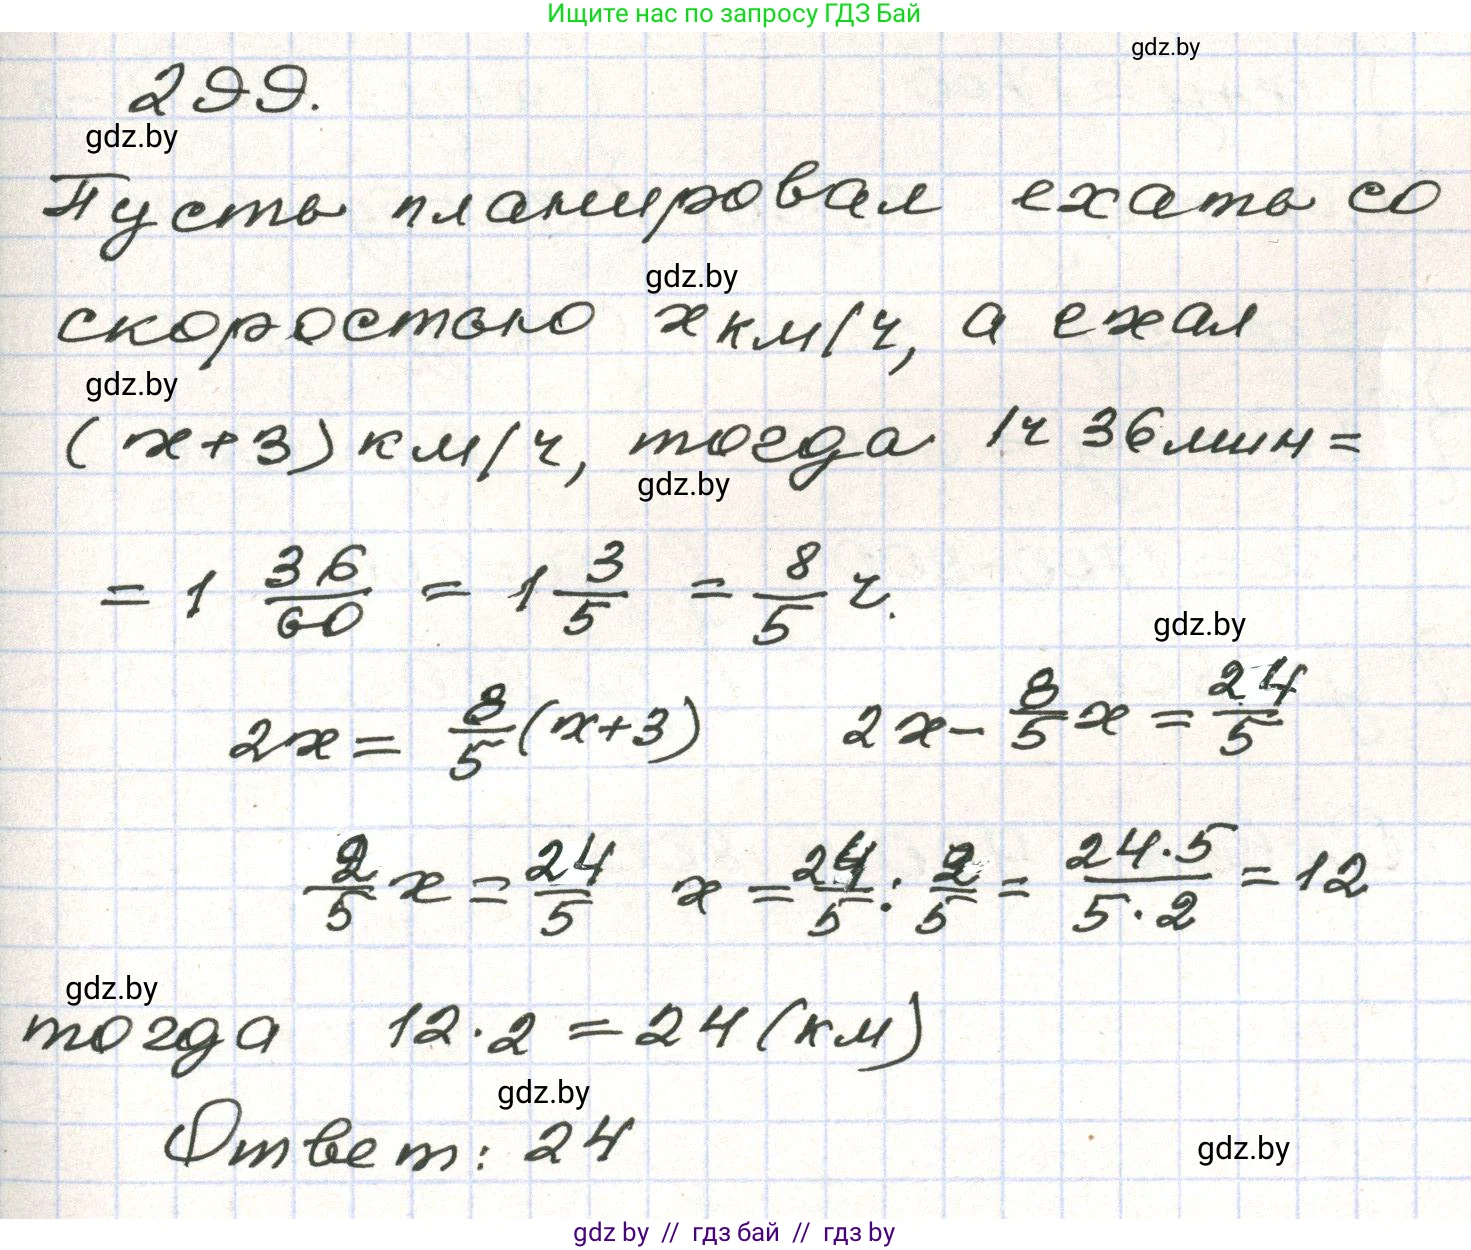 Ищите нас по запросу ГДЗ Бай
gdz.by
299.
gdz.by
Пусть планировал ехать со
gdz.by
скоростью x км/ч, а ехал
gdz.by
(x+3) км/ч, тогда 1ч 36мин=
gdz.by
= 1 36/60 = 1 3/5 = 8/5 ч.
gdz.by
2x = 8/5 (x+3) 2x - 8/5 x = 24/5
2/5 x = 24/5 x = 24/5 : 2/5 = 24·5/5·2 = 12
gdz.by
тогда 12·2 = 24 (км)
gdz.by
Ответ: 24
gdz.by
gdz by // гдз бай // гдз by